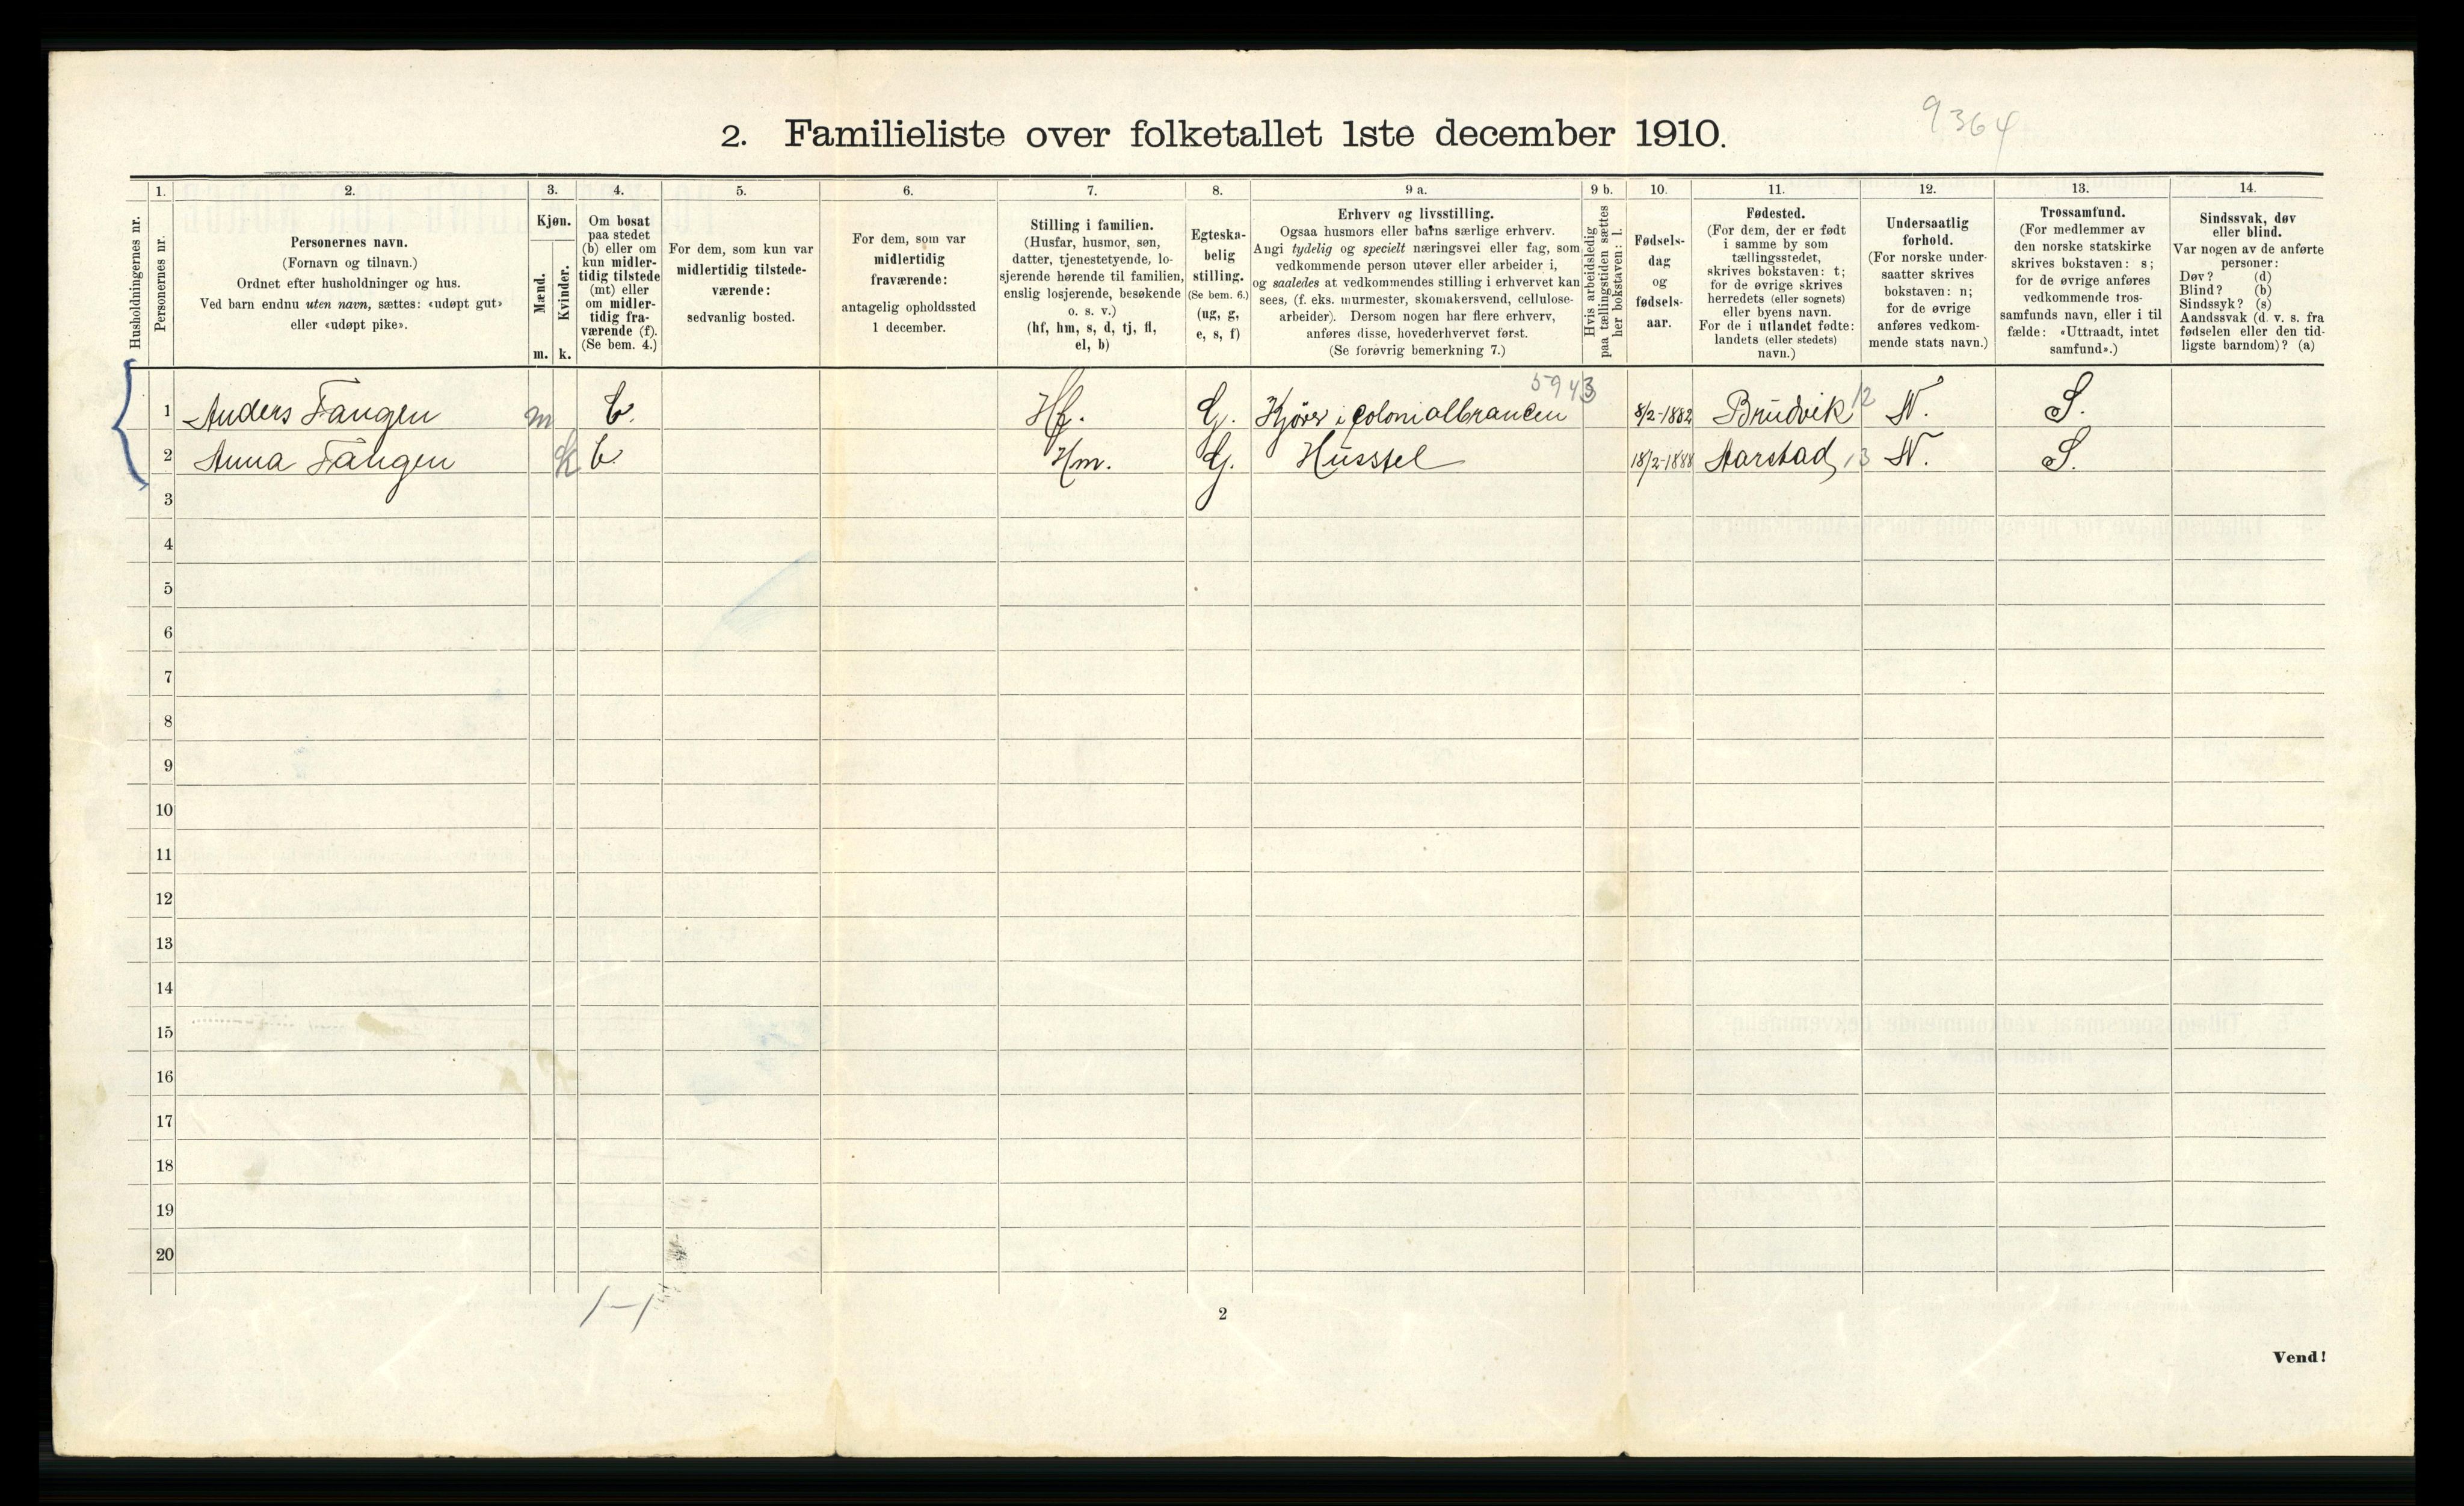 9364
2. Familieliste over folketallet 1ste december 1910.
1. 2. 3. 4. 5. 6. 7. 8. 9 a. 9 b. 10. 11. 12. 13. 14.
Husholdningernes nr.
Personernes nr.
Personernes navn.
(Fornavn og tilnavn.)
Ordnet efter husholdninger og hus.
Ved barn endnu uten navn, sættes: «udøpt gut»
eller «udøpt pike».
Kjøn.
Mænd.
Kvinder.
m. k.
Om bosat
paa stedet
(b) eller om
kun midler-
tidig tilstede
(mt) eller
om midler-
tidig fra-
værende (f).
(Se bem. 4.)
For dem, som kun var
midlertidig tilstede-
værende:
sedvanlig bosted.
For dem, som var
midlertidig
fraværende:
antagelig opholdssted
1 december.
Stilling i familien.
(Husfar, husmor, søn,
datter, tjenestetyende, lo-
sjerende hørende til familien,
enslig losjerende, besøkende
o. s. v.)
(hf, hm, s, d, tj, fl,
el, b)
Egteska-
belig
stilling.
(Se bem. 6.)
(ug, g,
e, s, f)
Erhverv og livsstilling.
Ogsaa husmors eller barns særlige erhverv.
Angi tydelig og specielt næringsvei eller fag, som
vedkommende person utøver eller arbeider i,
og saaledes at vedkommendes stilling i erhvervet kan
sees, (f. eks. murmester, skomakersvend, cellulose-
arbeider). Dersom nogen har flere erhverv,
anføres disse, hovederhvervet først.
(Se forøvrig bemerkning 7.)
Hvis arbeidsledig
paa tællingstiden sættes
her bokstaven: l.
Fødsels-
dag
og
fødsels-
aar.
Fødested.
(For dem, der er født
i samme by som
tællingsstedet,
skrives bokstaven: t;
for de øvrige skrives
herredets (eller sognets)
eller byens navn.
For de i utlandet fødte:
landets (eller stedets)
navn.)
Undersaatlig
forhold.
(For norske under-
saatter skrives
bokstaven: n;
for de øvrige
anføres vedkom-
mende stats navn.)
Trossamfund.
(For medlemmer av
den norske statskirke
skrives bokstaven: s;
for de øvrige anføres
vedkommende tros-
samfunds navn, eller i til
fælde: «Uttraadt, intet
samfund».)
Sindssvak, døv
eller blind.
Var nogen av de anførte
personer:
Døv? (d)
Blind? (b)
Sindssyk? (s)
Aandssvak (d. v. s. fra
fødselen eller den tid-
ligste barndom)? (a)
5943
1 Anders Fangen m b. Hf. G. Kjörer i Colonialbrancen 8/2-1882 Brudvik 12 N. S.
2 Anna Fangen k b. Hm. G. Husstel 18/2-1888 Aarstad, 13 N. S.
3
4
5
6
7
8
9
10
11
12
13
14
15
16
17
18
19
20
1-1
2
Vend!